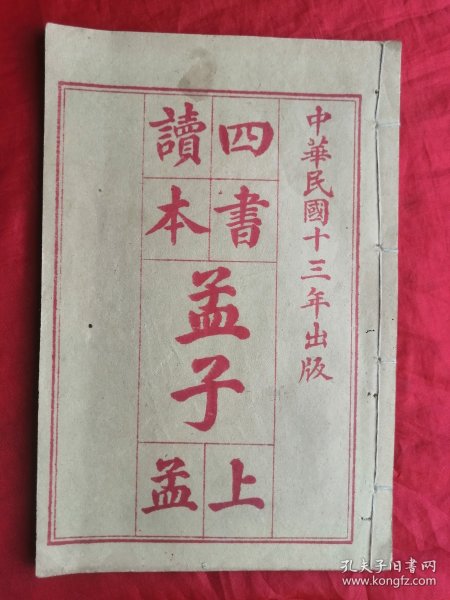 中華民國十三年出版
四書
讀本
孟子
上
孟
孔夫子旧书网
www.kongfz.com